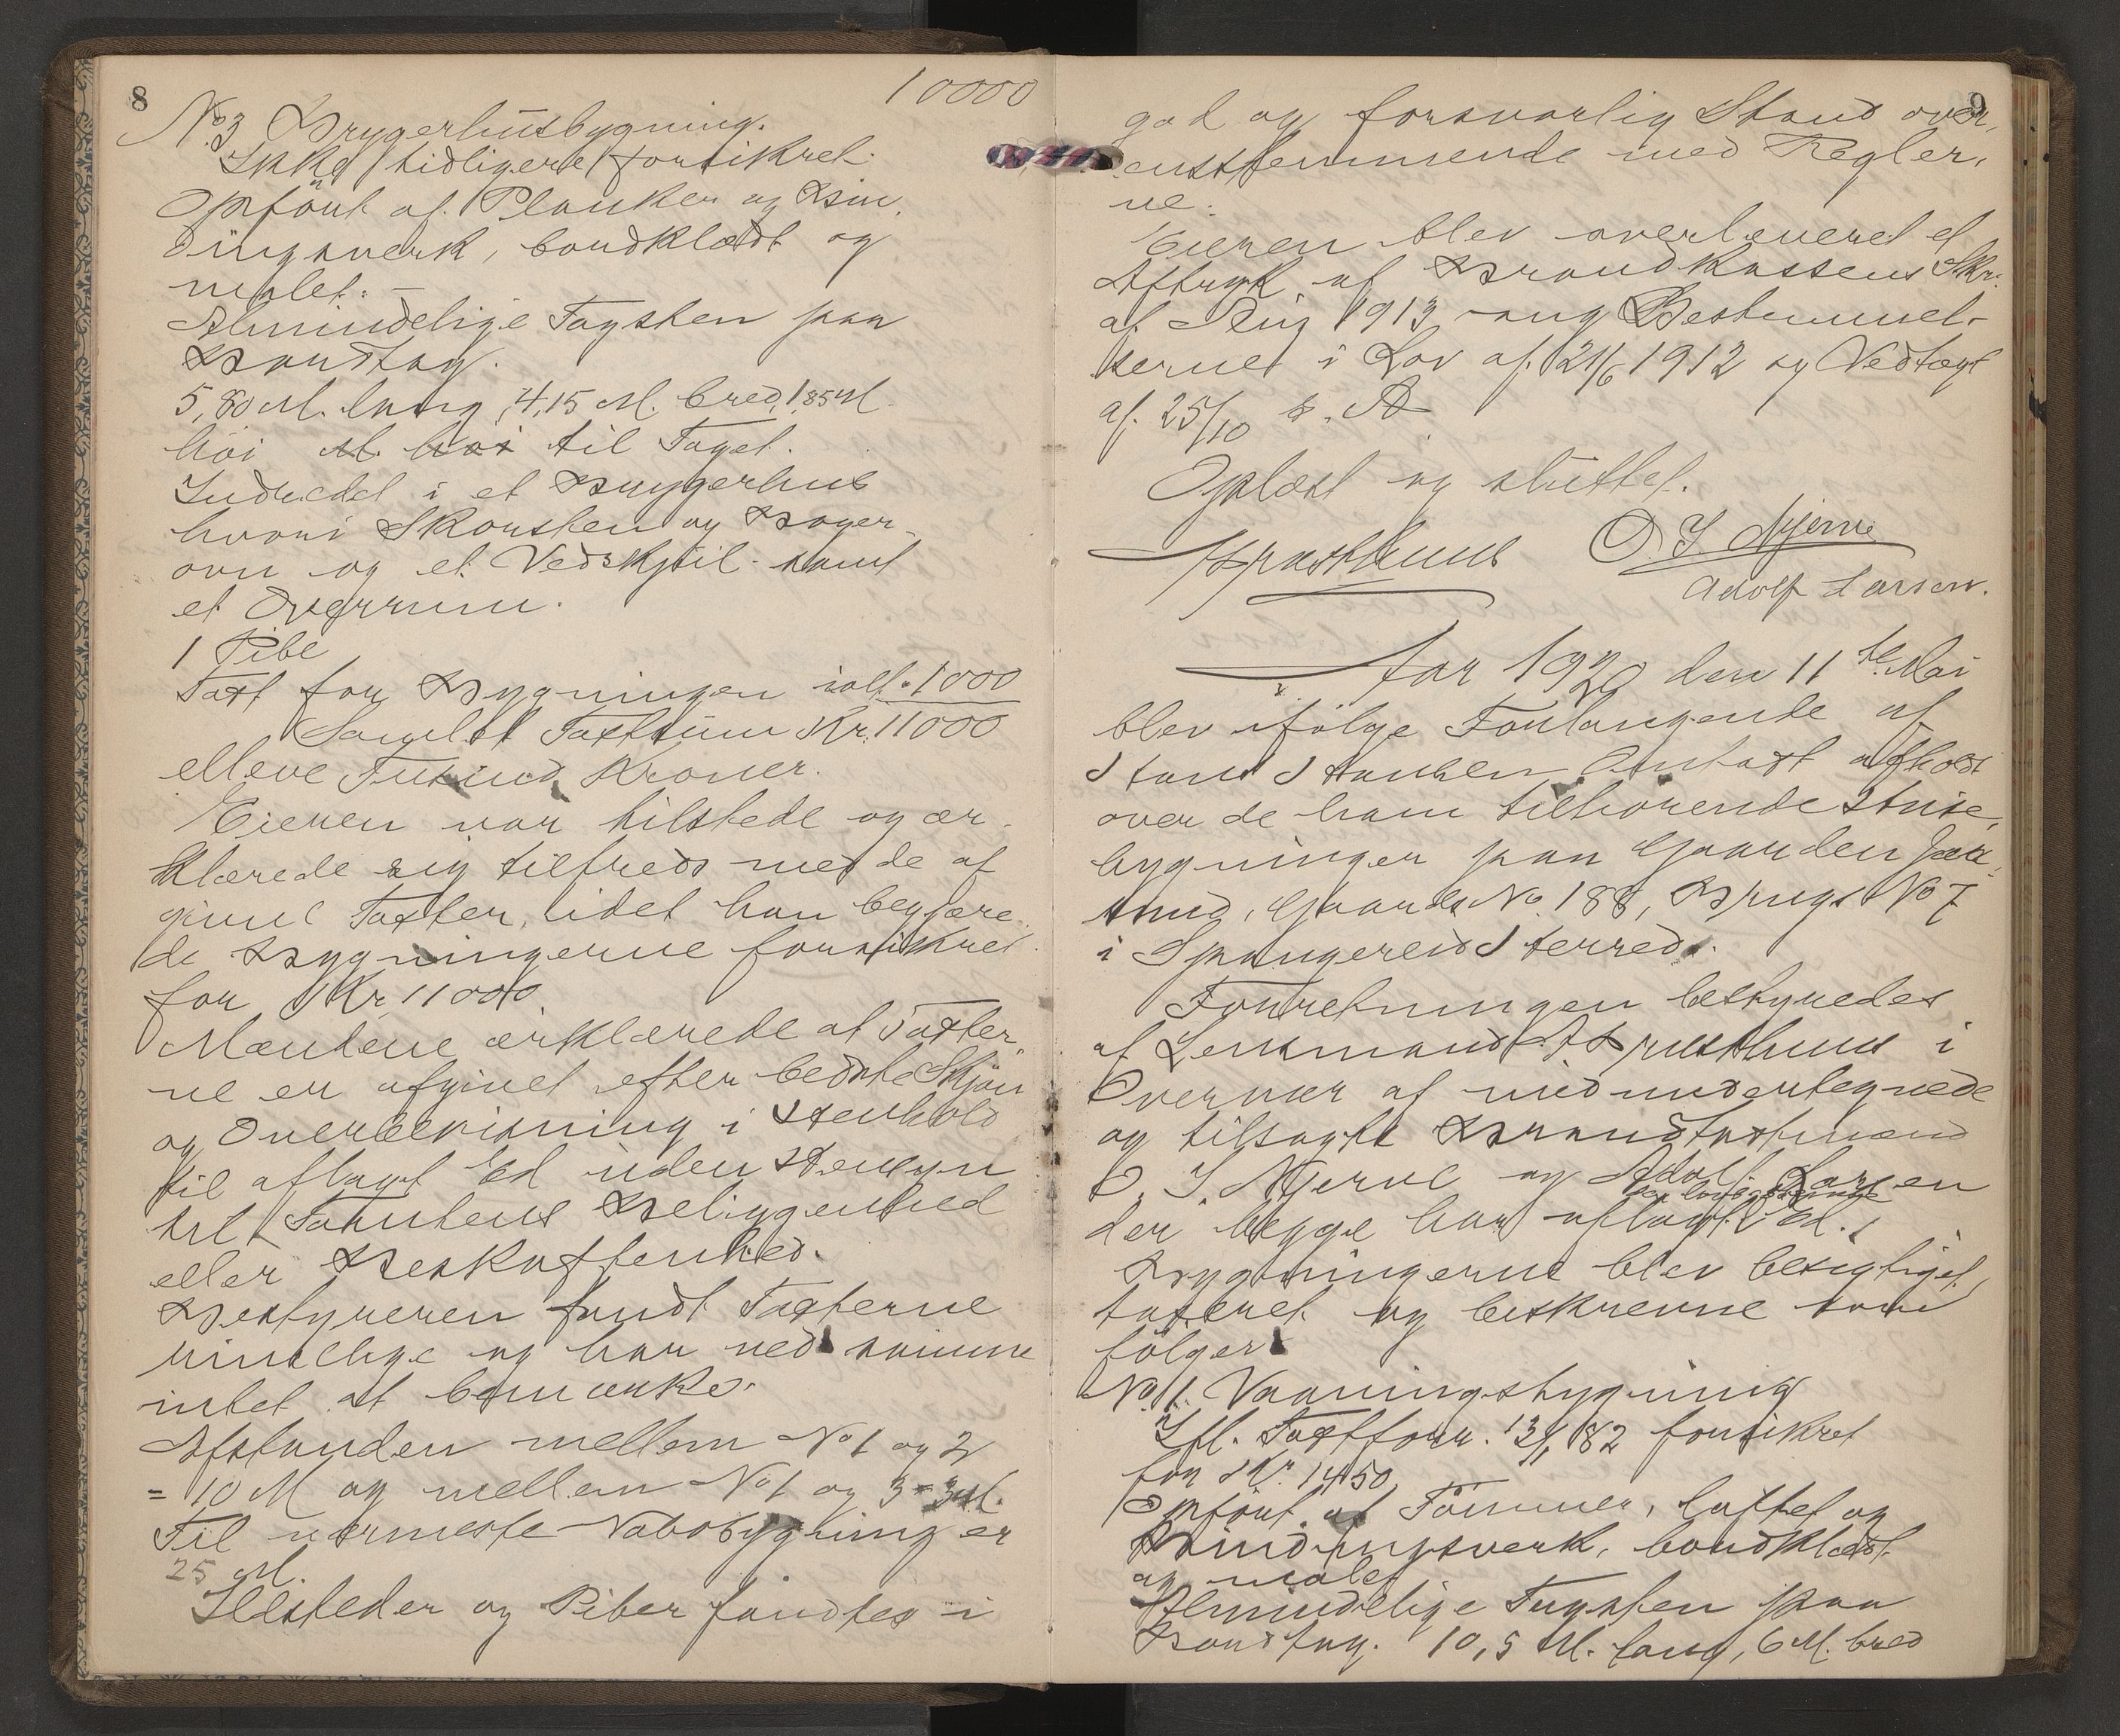 8
10000
No 3 Bryggerhusbygning.
Ikke tidligere forsikret.
Opført af Planker og Bin,
dingsverk, bordklædt og
malet. –
Almindelige Tagsten paa
Bordtag.
5,80 M. lang, 4,15 M. bred, 1,85 M.
høi til Taget.
Indredet i et Bryggerhus
hvori Skorsten og Bager-
ovn og et Vedskjul samt
et Overrum.
1 Pibe
Taxt for Bygningen ialt 1000
Samlet Taxtsum Kr. 11000
elleve Tusind Kroner.
Eieren var tilstede og er-
klærede sig tilfreds med de af
givne Taxter, idet han begjære
de Bygningerne forsikret
for Kr 11000
Mændene erklærede at Taxter,
ne er afgivet efter bedste Skjøn
og Overbevisning i Henhold
til aflagt Ed uden Hensyn
til Tomtens Beliggenhed
eller Beskaffenhed.
Bestyreren fandt Taxterne
rimelige og har ved samme
intet at bemærke.
Afstanden mellem No 1 og 2
= 10 M og mellem No 1 og 3 = 3 M.
Til nærmeste Nabobygning er
25 M.
Ildsteder og Piber fandtes i
9
god og forsvarlig Stand over,
ensstemmende med Regler,
ne.
Eieren blev overleveret et
Aftryk af Brandkassens Skr.
af Aug 1913 ang Bestemmel-
serne i Lov af 21/6 1912 og Vedtægt
af 25/10 s. A
Oplæst og sluttet.
O. I. Njerve
Adolf Larsen.
Aar 1920 den 11te Mai
blev ifølge Forlangende af
Omtaxt afholdt
over de ham tilhørende Huse,
bygninger paa Gaarden Jaa,
sund, Gaards No. 188, Brugs No 7
i Spangereid Herred.
Forretningen bestyredes
af Lensmand i
Overvær af medundertegnede
og tilsagte Brandtaxtmænd
O. I. Njerve og Adolf Larsen
der begge har aflagt Ed.
Bygningerne blev besigtiget,
taxeret og beskrevne som
følger
No 1. Vaaningsbygning
Ifl. Taxtforr. 13/1 82 forsikret
for Kr. 1450
Opført af Tømmer, laftet og
Bindingsverk, bordklædt
og malet
Almindelige Tagsten paa
Bordtag. 10,5 M. lang, 6 M. bred